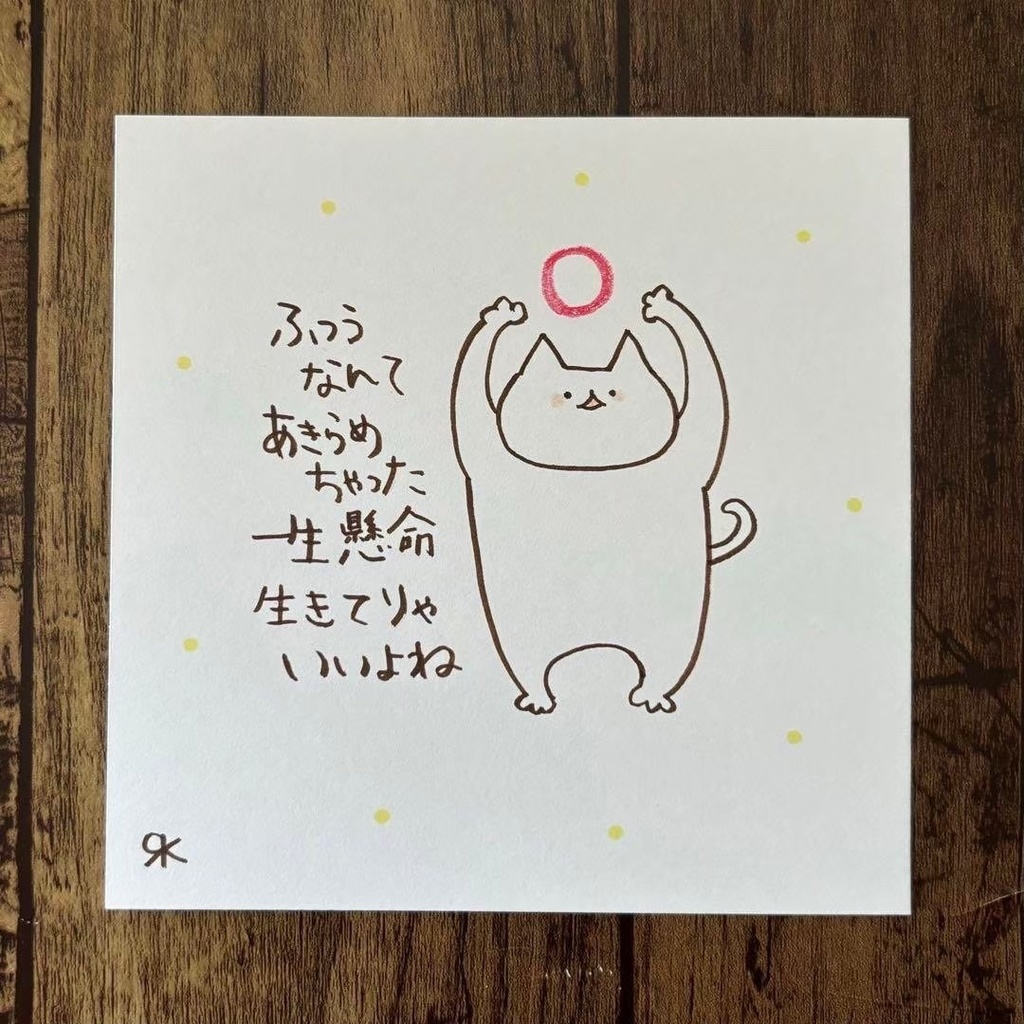 ふつう
なんて
あきらめ
ちゃった
一生懸命
生きてりゃ
いいよね